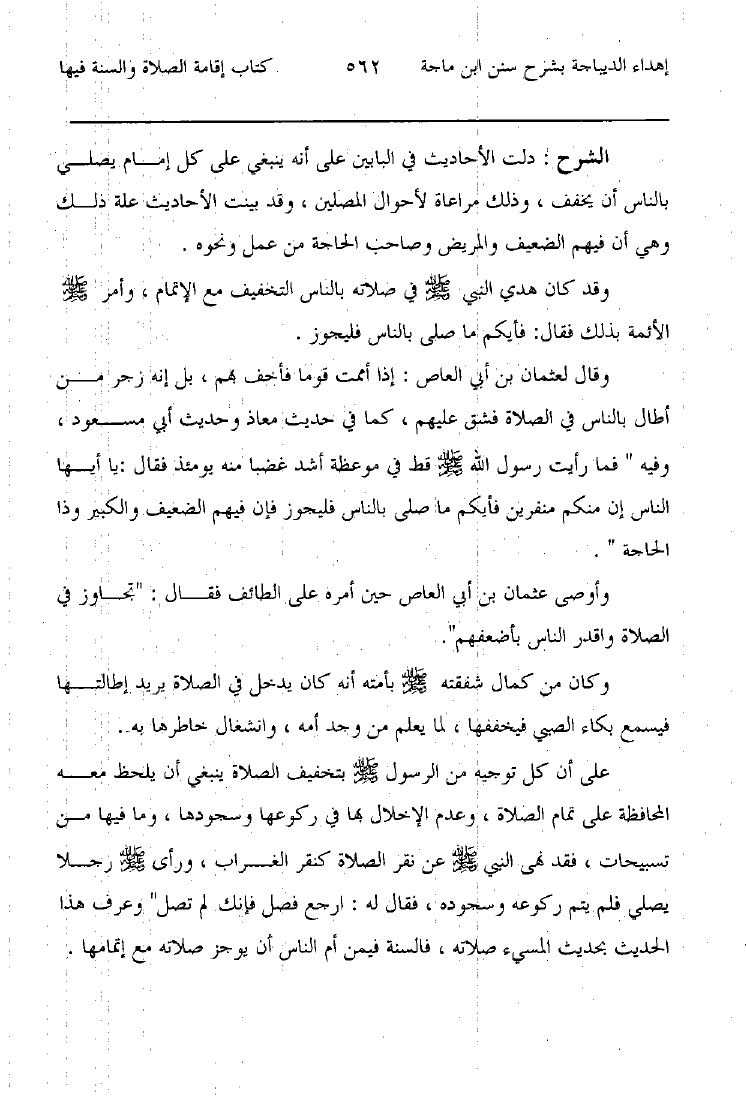 إهداء الديباجة بشرح سنن ابن ماجة ٥٦٢ كتاب إقامة الصلاة والسنة فيها
الشرح : دلت الأحاديث في البابين على أنه ينبغي على كل إمام يصلي
بالناس أن يخفف ، وذلك مراعاة لأحوال المصلين ، وقد بينت الأحاديث علة ذلك
وهي أن فيهم الضعيف والمريض وصاحب الحاجة من عمل ونحوه .
وقد كان هدي النبي ﷺ في صلاته بالناس التخفيف مع الإتمام ، وأمر ﷺ
الأئمة بذلك فقال: فأيكم ما صلى بالناس فليجوز .
وقال لعثمان بن أبي العاص : إذا أممت قوما فأخف بهم ، بل إنه زجر من
أطال بالناس في الصلاة فشق عليهم ، كما في حديث معاذ وحديث أبي مسعود ،
وفيه " فما رأيت رسول الله ﷺ قط في موعظة أشد غضبا منه يومئذ فقال :يا أيها
الناس إن منكم منفرين فأيكم ما صلى بالناس فليجوز فإن فيهم الضعيف والكبير وذا
الحاجة " .
وأوصى عثمان بن أبي العاص حين أمره على الطائف فقال : "تجاوز في
الصلاة واقدر الناس بأضعفهم".
وكان من كمال شفقته ﷺ بأمته أنه كان يدخل في الصلاة يريد إطالتها
فيسمع بكاء الصبي فيخففها ، لما يعلم من وجد أمه ، وانشغال خاطرها به..
على أن كل توجيه من الرسول ﷺ بتخفيف الصلاة ينبغي أن يلحظ معه
المحافظة على تمام الصلاة ، وعدم الإخلال بها في ركوعها وسجودها ، وما فيها من
تسبيحات ، فقد نهى النبي ﷺ عن نقر الصلاة كنقر الغراب ، ورأى ﷺ رجلا
يصلي فلم يتم ركوعه وسجوده ، فقال له : ارجع فصل فإنك لم تصل" وعرف هذا
الحديث بحديث المسيء صلاته ، فالسنة فيمن أم الناس أن يوجز صلاته مع إتمامها .